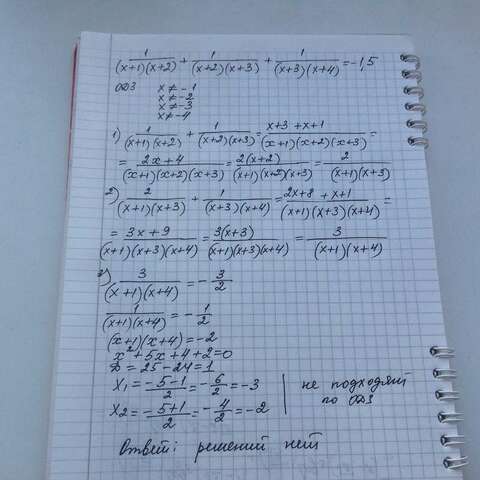 1/((x+1)(x+2)) + 1/((x+2)(x+3)) + 1/((x+3)(x+4)) = -1,5
ОДЗ x ≠ -1
x ≠ -2
x ≠ -3
x ≠ -4
1) 1/((x+1)(x+2)) + 1/((x+2)(x+3)) = (x+3+x+1)/((x+1)(x+2)(x+3)) =
= (2x+4)/((x+1)(x+2)(x+3)) = 2(x+2)/((x+1)(x+2)(x+3)) = 2/((x+1)(x+3))
2) 2/((x+1)(x+3)) + 1/((x+3)(x+4)) = (2x+8+x+1)/((x+1)(x+3)(x+4)) =
= (3x+9)/((x+1)(x+3)(x+4)) = 3(x+3)/((x+1)(x+3)(x+4)) = 3/((x+1)(x+4))
3) 3/((x+1)(x+4)) = -3/2
1/((x+1)(x+4)) = -1/2
(x+1)(x+4) = -2
x²+5x+4+2=0
D = 25-24=1
x₁ = (-5-1)/2 = -6/2 = -3 | не подходят
x₂ = (-5+1)/2 = -4/2 = -2 | по ОДЗ
Ответ: решений нет